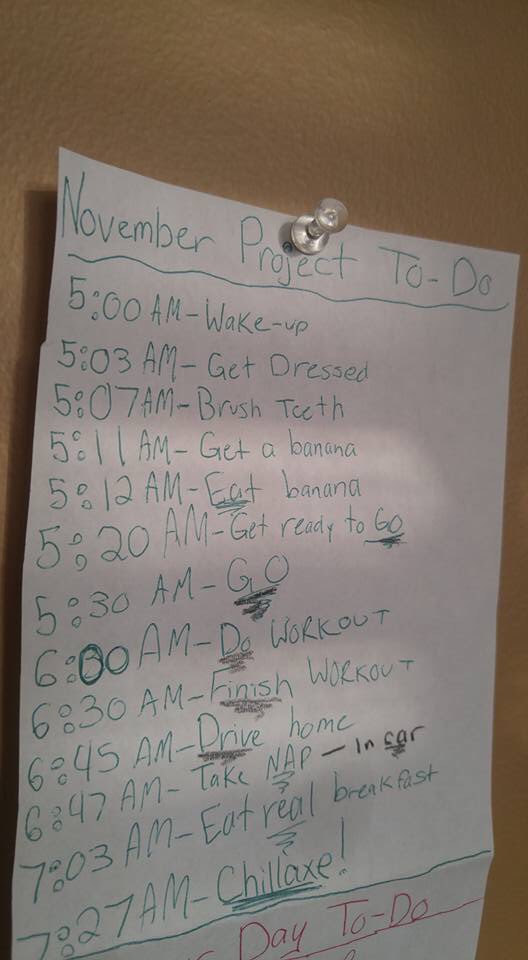 November Project To-Do
5:00 AM-Wake-up
5:03 AM-Get Dressed
5:07 AM-Brush Teeth
5:11 AM-Get a banana
5:12 AM-Eat banana
5:20 AM-Get ready to GO
5:30 AM-GO
6:00 AM-Do WORKOUT
6:30 AM-Finish WORKOUT
6:45 AM-Drive home
6:47 AM-Take NAP - In car
7:03 AM-Eat real breakfast
7:27 AM-Chillaxe!
Day To-Do